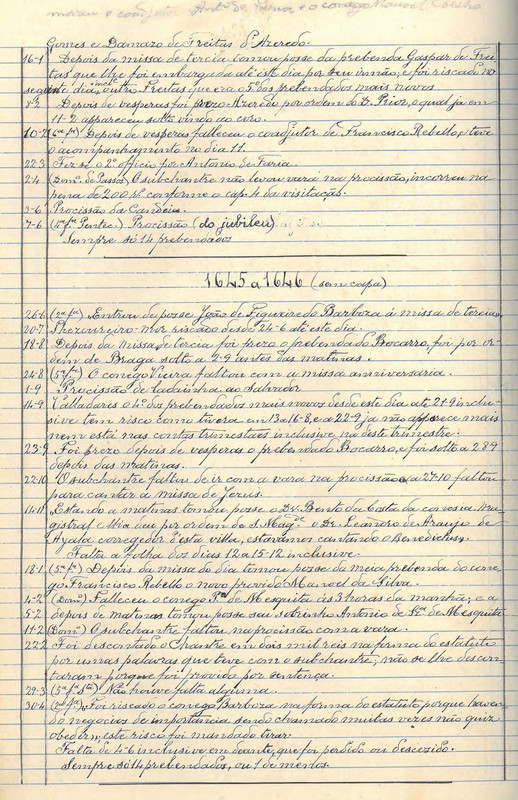 Gomes e Damazo de Freitas d'Azeredo.
16-1 Depois da missa de tercia tomou posse da prebenda Gaspar de Frei-
tas que lhe foi embargada até este dia por seu irmão, e foi riscado no
seguinte dia, outro Freitas que era o 5º dos prebendados mais novos
8-2 Depois de vesperas foi prezo Azeredo por ordem do D. Prior, o qual já em
11-2 appareceu solto vindo ao coro.
10-2 Depois de vesperas falleceu o coadjutor de Francisco Rebello, e teve
o acompanhamento no dia 11.
22-3 Fez-se o 2º officio por Antonio de Faria.
2-4 (Domº de Passos) O subchantre não levou vara na procissão, incorreu na
pena de 200 rs conforme o cap. 4 da visitação.
3-6 Procissão da Candeia.
7-6 (4ª fª Pentec.) Procissão (do jubileu)
Sempre só 14 prebendados
1645 a 1646 (sem capa)
26-6 (2ª fª) Entrou de posse João de Figueiredo Barboza á missa de tercia.
20-7 Thezoureiro-mór riscado desde 24-6 até este dia.
18-8 Depois da missa de tercia foi prezo o prebendado Bocarro, foi por or-
dem de Braga solto a 2-9 antes das matinas.
24-8 (5ª fª) O conego Vieira faltou com a missa anniversaria.
1-9 Procissão de ladainha ao Salvador
14-9 Valladares o 4º dos prebendados mais novos desde este dia até 21-9 inclu-
sive tem risco como tivera em 13 a 16-8, e a 22-9 já não apparece mais
nem está nas contas trimestaes inclusive na deste trimestre.
23-9 Foi prezo depois de vesperas o prebendado Bocarro, e foi solto a 28-9
depois das matinas.
22-10 O subchantre faltou de ir com a vara na procissão e a 27-10 faltou
para cantar a missa de Jesus.
14-11 Estando a matinas tomou posse o Dr. Bento da Costa da conesia Ma-
gistral e lh'a deu por ordem de S. Magde o Dr. Leandro de Araujo de
Ayala corregedor d'esta villa, estavamos cantando o Benedictus.
Falta a folha dos dias 12 a 15-12 inclusive.
18-1 (5ª fª) Depois da missa do dia tomou posse da meia prebenda do cone-
go Francisco Rebello o novo provido Manoel da Silva.
4-2 (Domº) Falleceu o conego Rº de Mesquita ás 3 horas da manhã; e a
5-2 depois de matinas tomou posse seu sobrinho Antonio de de Mesquita
11-2 (Domº) O subchantre faltou na procissão com a vara.
22-2 Foi descontado o Chantre em dois mil reis na forma do estatuto
por umas palavras que teve com o subchantre; não se lhe descon-
taram porque foi provido por sentença.
29-3 (5ª fª Sta) Não houve falta alguma.
30-4 (2ª fª) Foi riscado o conego Barboza na forma do estatuto porque haven-
do negocios de importancia sendo chamado muitas vezes não quiz
obedecer, este risco foi mandado tirar.
Falta de 4-6 inclusive em deante, que foi perdido ou descozido.
Sempre só 14 prebendados, ou 1 de menos.